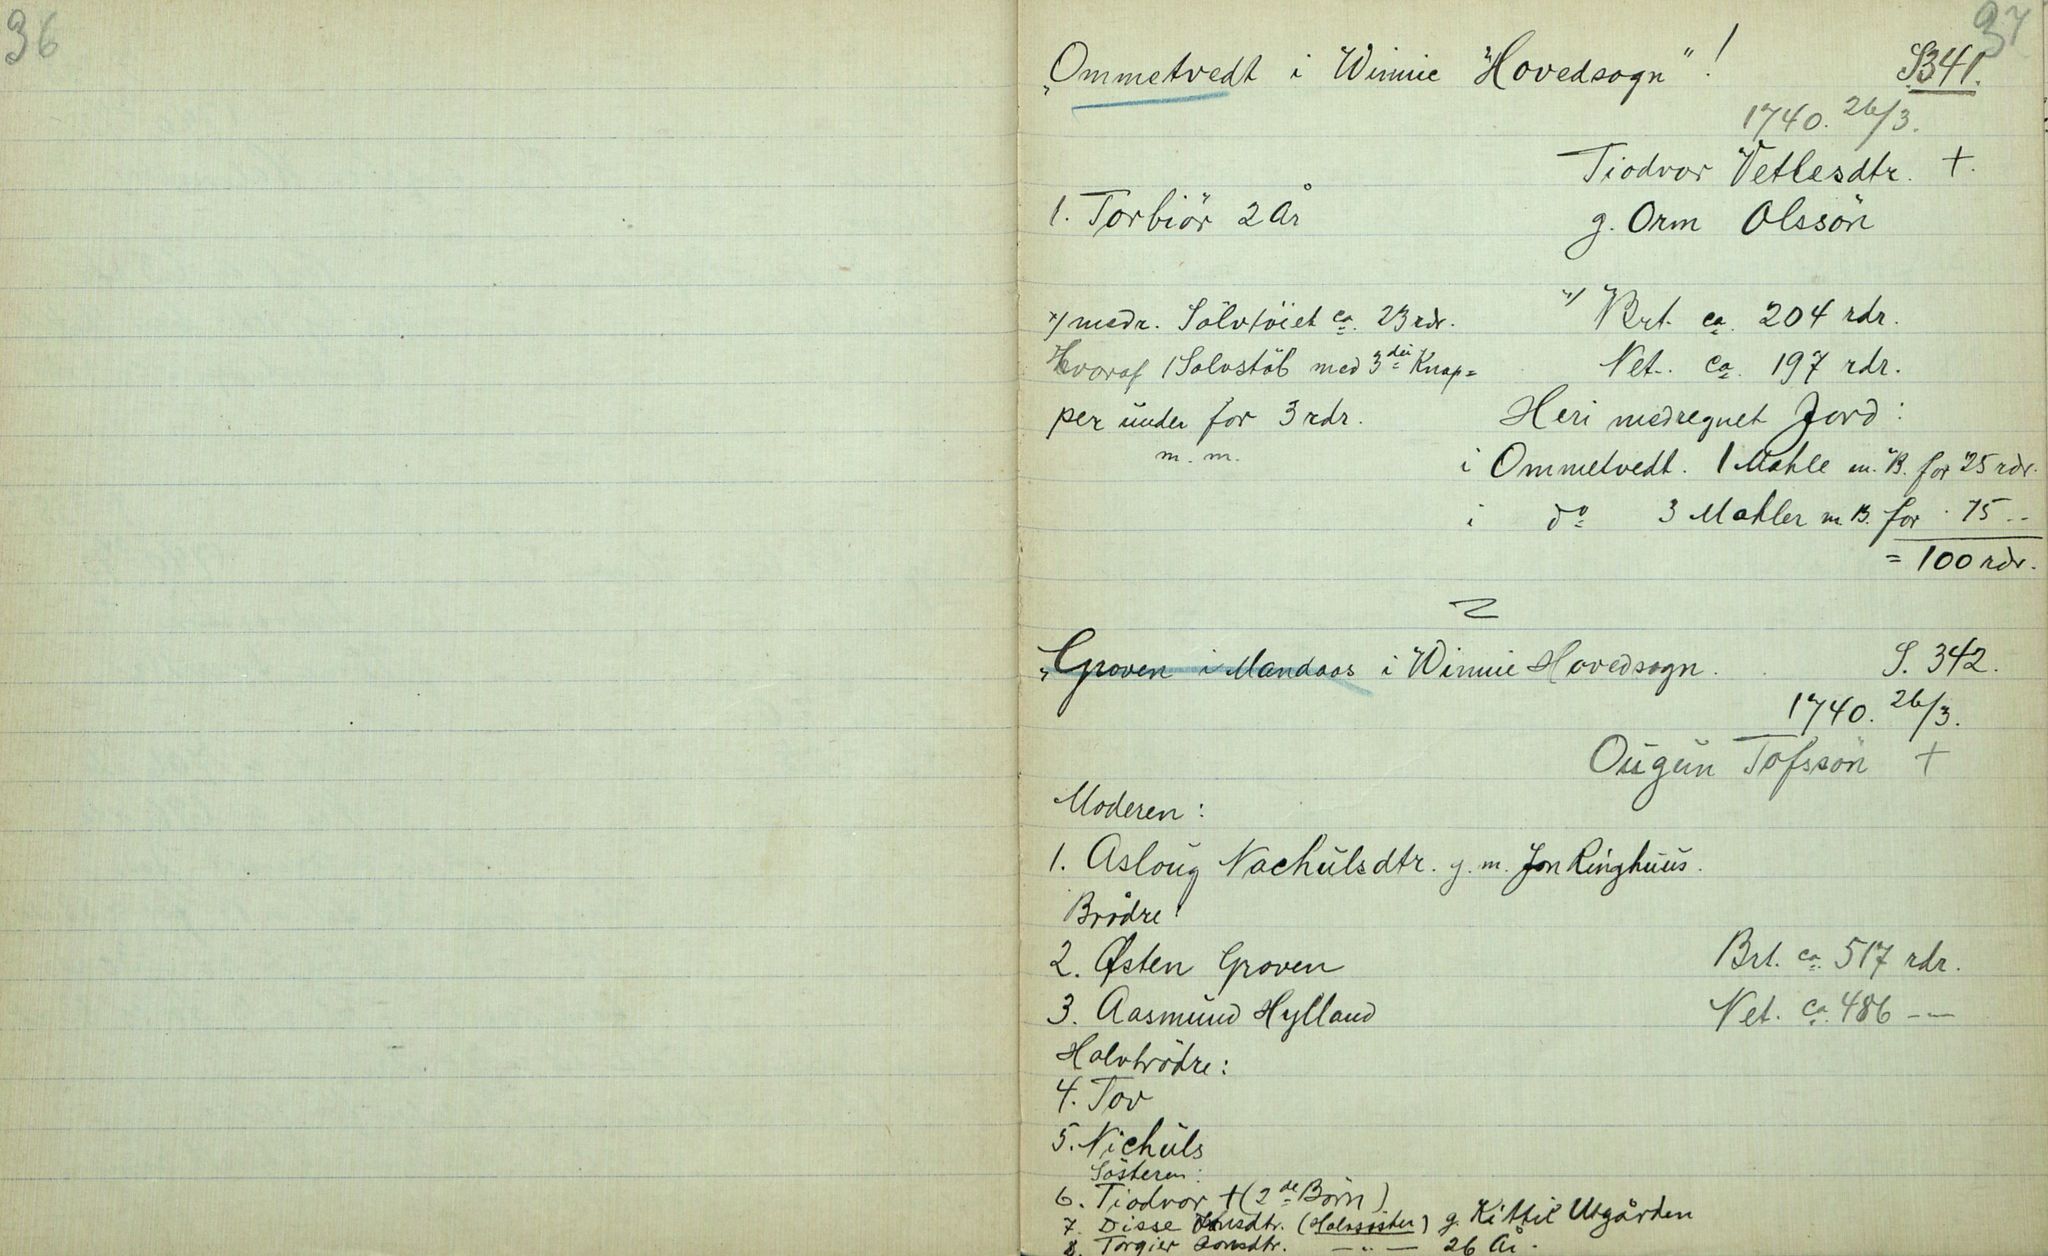 36
37
"Ommetvedt i Winnie "Hovedsogn"! S341.
1740. 26/3.
Tiodvor Vetlesdtr. +.
1. Torbiör 2 År
g. Orm Olssön
x/ Brt. ca. 204 rdr.
x/ medr. Sölvtöiet ca. 23 rdr.
Net. ca. 197 rdr.
Hvoraf 1 Solvstöb med 3de Knap=
per under for 3 rdr.
m. m.
Heri medregnet Jord:
i Ommetvedt. 1 Mahle m. B. for 25 rdr.
i do 3 Mahler m B. for 75 --
= 100 rdr.
"Groven i Mandaas i Winnie Hovedsogn. S. 342.
1740. 26/3.
Ougun Tofssön +
Moderen:
1. Asloug Nachulsdtr. g. m. Jon Ringhuus.
Brödre:
2. Østen Groven
Brt. ca. 517 rdr.
3. Aasmund Hylland
Net. ca. 486 --
Halvbrödre:
4. Tov
5. Nichuls
Sösteren:
6. Tiodvor + (2de Börn)
7. Disse Jonsdtr. (Halvsöster) g. Kittil Utgården
8. Torgier Jonsdtr. —"— 26 År.